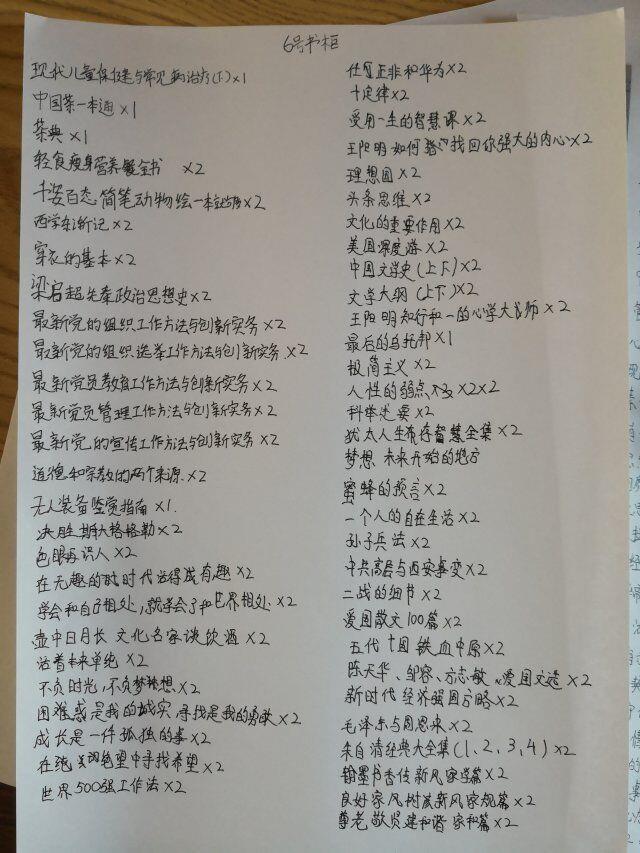 6号书柜
现代儿童保健与常见病治疗(下)×1
中国茶一本通×1
茶典×1
轻食瘦身营养餐全书 ×2
千姿百态简笔动物绘一本就够×2
西学东渐记×2
穿衣的基本×2
梁启超先秦政治思想史×2
最新党的组织工作方法与创新实务×2
最新党的组织选举工作方法与创新实务×2
最新党员教育工作方法与创新实务×2
最新党员管理工作方法与创新实务×2
最新党的宣传工作方法与创新实务×2
道德和宗教的两个来源×2
无人装备鉴赏指南×1
决胜斯大格格勒×2
色眼再识人×2
在无趣的时代活得有趣×2
学会和自己相处,就学会了和世界相处×2
壶中日月长 文化名家谈饮酒×2
活着本来单纯×2
不负时光,不负梦想×2
困难或是我的诚实 寻找是我的勇敢×2
成长是一件孤独的事×2
在绝望中寻找希望×2
世界500强工作法×2
任正非和华为×2
十定律×2
受用一生的智慧课×2
王阳明如何 找回你强大的内心×2
理想国×2
头条思维×2
文化的重要作用×2
美国深度游×2
中国文学史(上下)×2
文学大纲(上下)×2
王阳明知行和一的心学大师×2
最后的乌托邦×1
极简主义×2
人性的弱点 ×2×2
科举述要×2
犹太人生存智慧全集×2
梦想 未来开始的地方
蜜蜂的预言×2
一个人的自在生活×2
孙子兵法×2
中共高层与西安事变×2
二战的细节×2
爱国散文100篇×2
五代十国铁血中原×2
陈天华、邹容、方志敏 爱国文选×2
新时代经济强国方略×2
毛泽东与周恩来×2
朱自清经典大全集(1、2、3、4)×2
翰墨书香传新风家学篇×2
良好家风树减新风家规篇×2
尊老敬贤建和谐家和篇×2